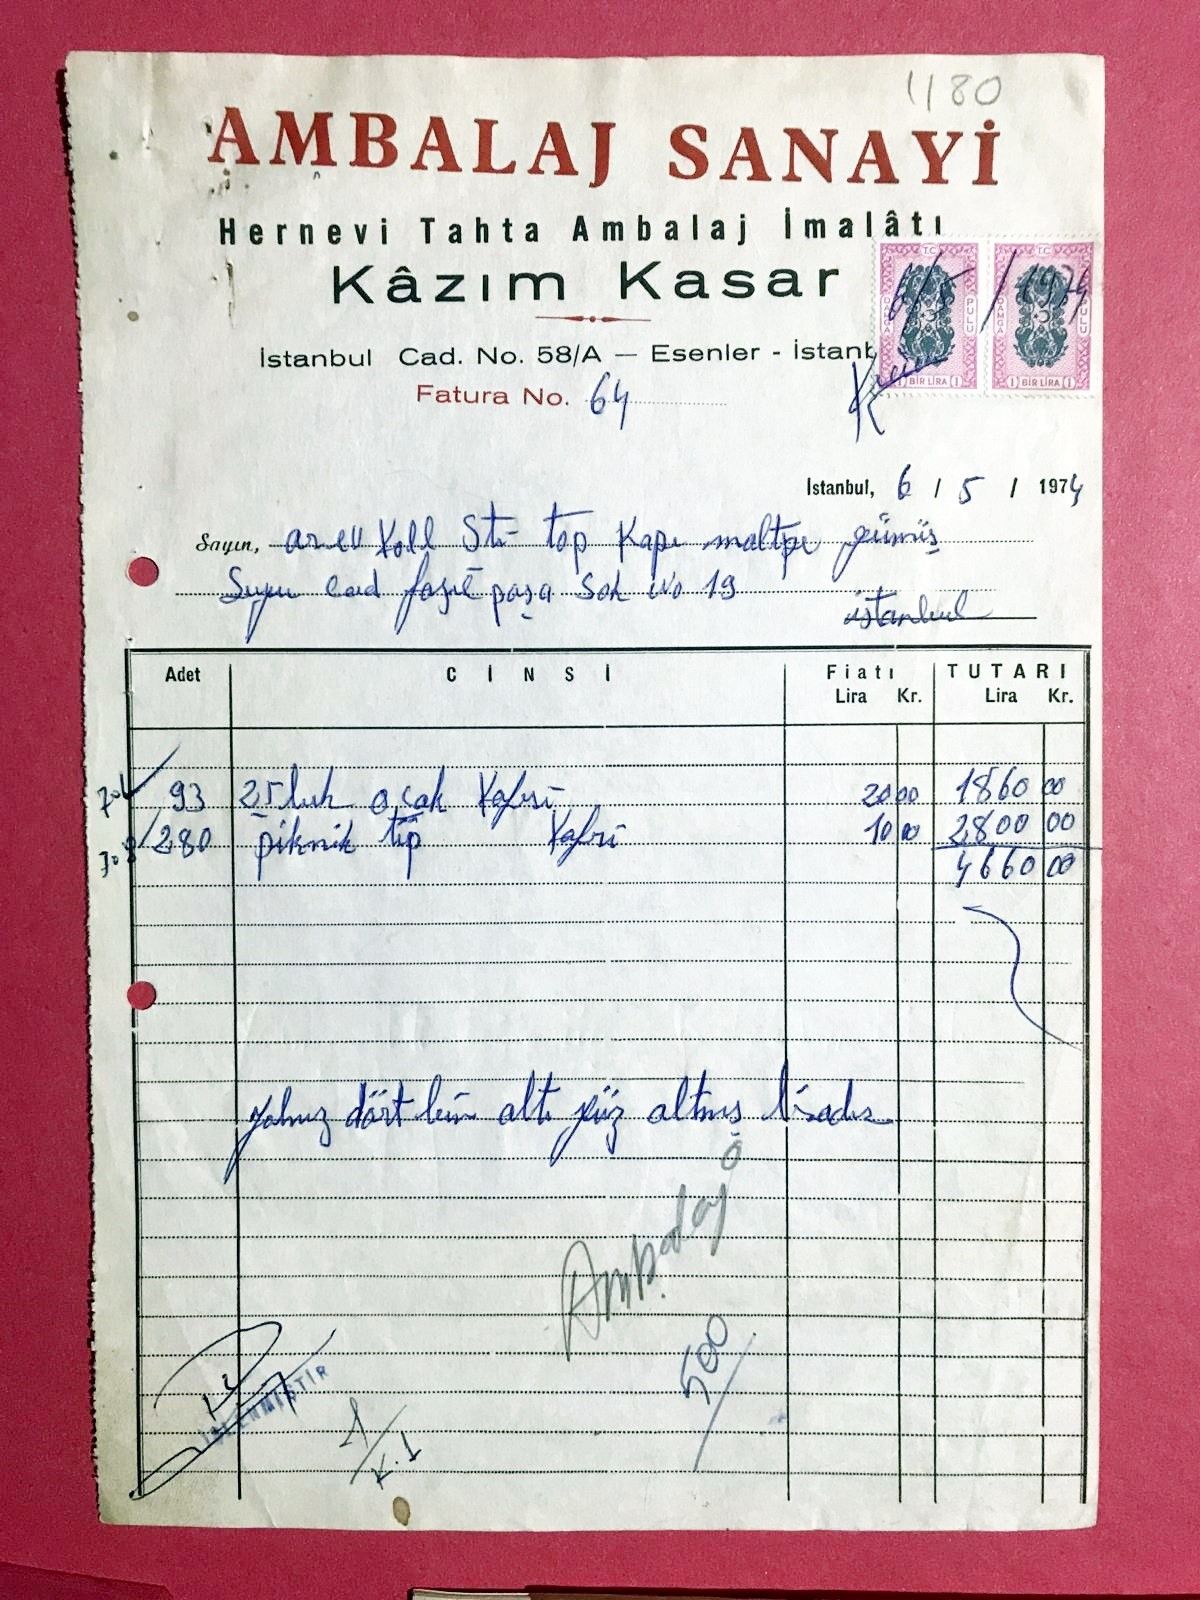 1180
AMBALAJ SANAYİ
Hernevi Tahta Ambalaj İmalâtı
Kâzım Kasar
İstanbul Cad. No. 58/A — Esenler - İstanb
T.C. DAMGA PULU (1) BİR LİRA (1)
T.C. DAMGA PULU (1) BİR LİRA (1)
6/5/1974
Fatura No. 64
İstanbul, 6 / 5 / 1974
Sayın, Koll Şti top Kapı maltpe gümüş
Suyu cad paşa Sok No 19
istanbul
Adet CİNSİ Fiatı TUTARI
Lira Kr. Lira Kr.
93 25 luk ocak Kafesi 20 00 1860 00
280 piknik tip Kafsi 10 00 2800 00
4660 00
yalnız dört bin altı yüz altmış liradır
Ambalaj
500
İŞLENMİŞTİR
K.1